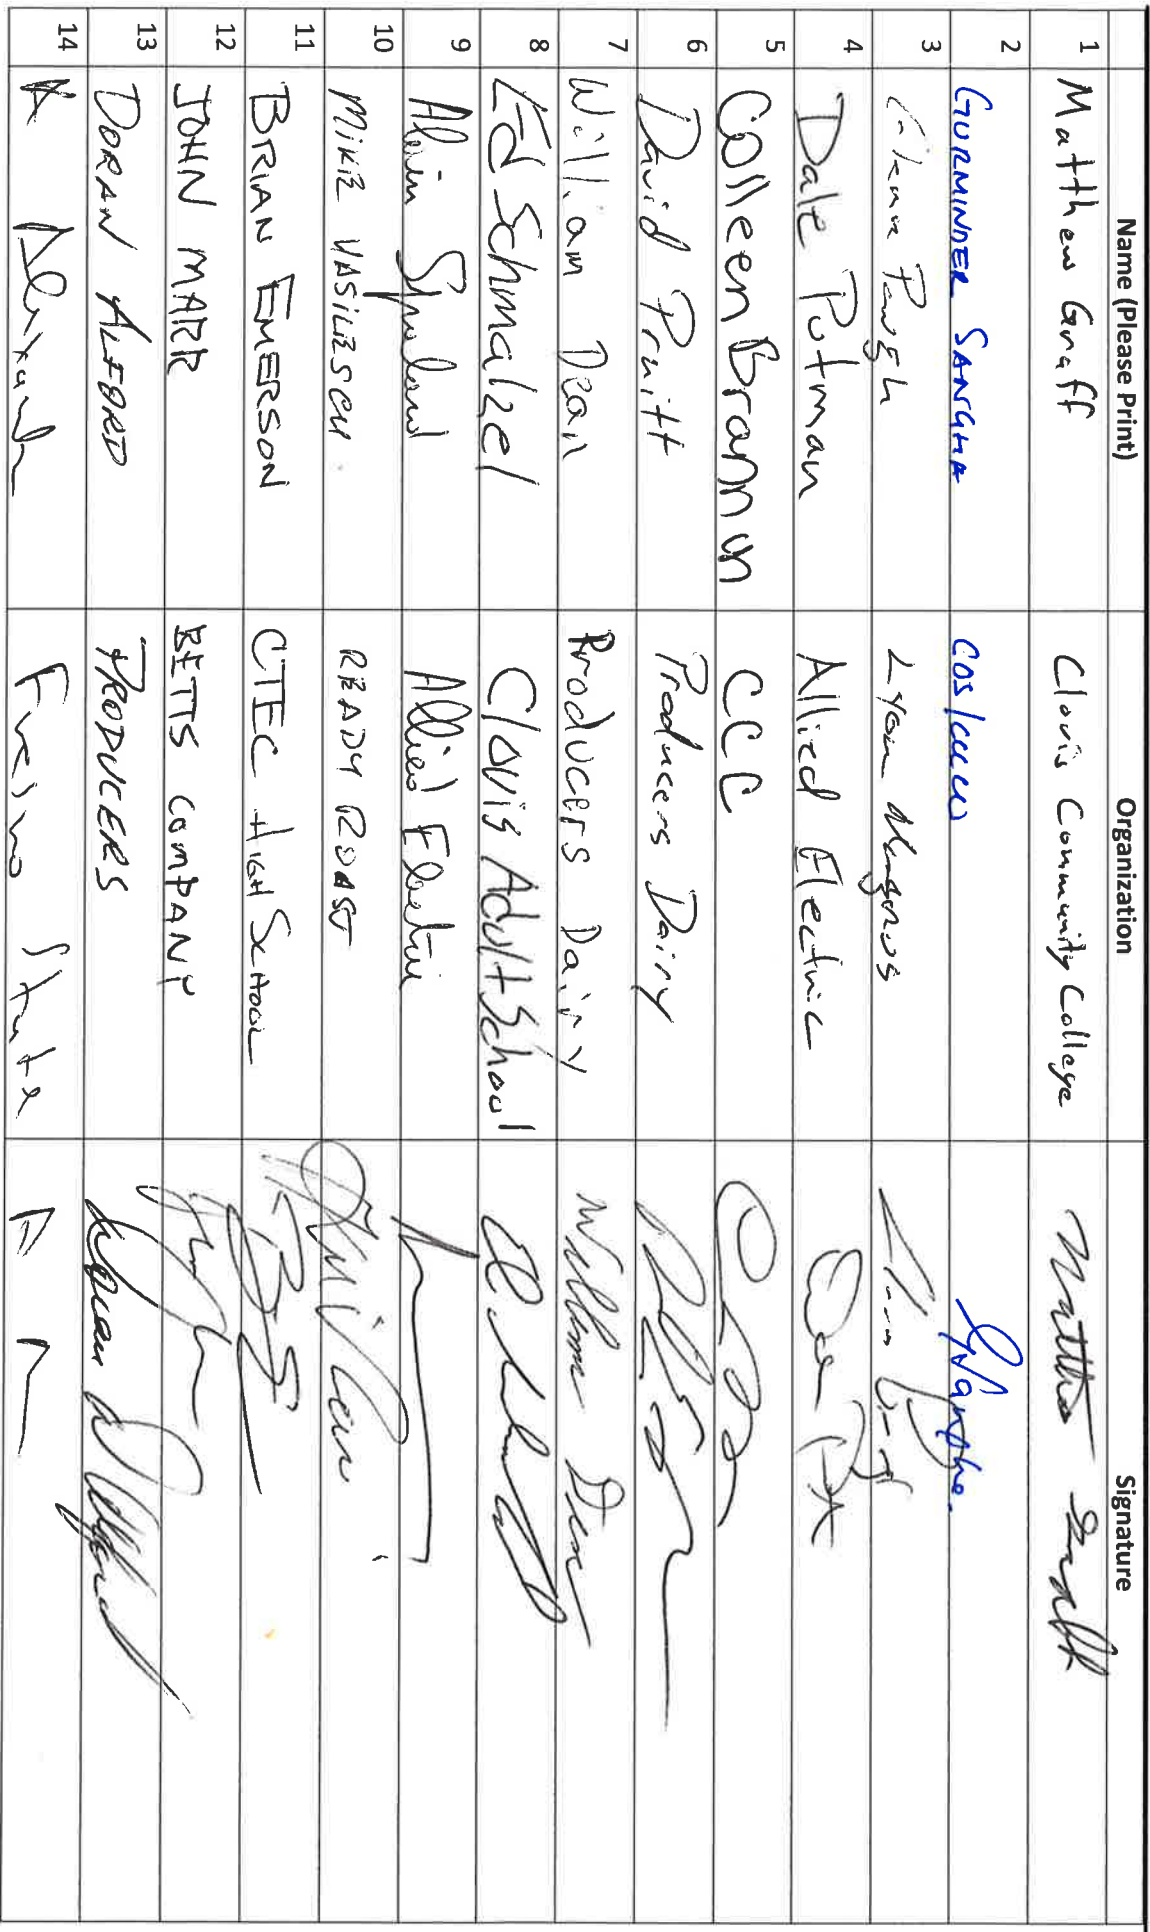 Name (Please Print) Organization Signature
1 Matthew Graff Clovis Community College Matthew Graff
2 GURMINDER SANGHA COS/
3 Lyons Magnus
4 Dale Putman Allied Electric
5 Colleen Brannon CCC
6 David Pruitt Producers Dairy
7 William Dean Producers Dairy William Dean
8 Ed Schmalzel Clovis Adult School
9 Alain Allied Electric
10 MIKE VASILESCU READY ROAST
11 BRIAN EMERSON CTEC HIGH SCHOOL
12 JOHN MARR BETTS COMPANY
13 DORAN ALFORD PRODUCERS Doran Alford
14 A Alexander Fresno State